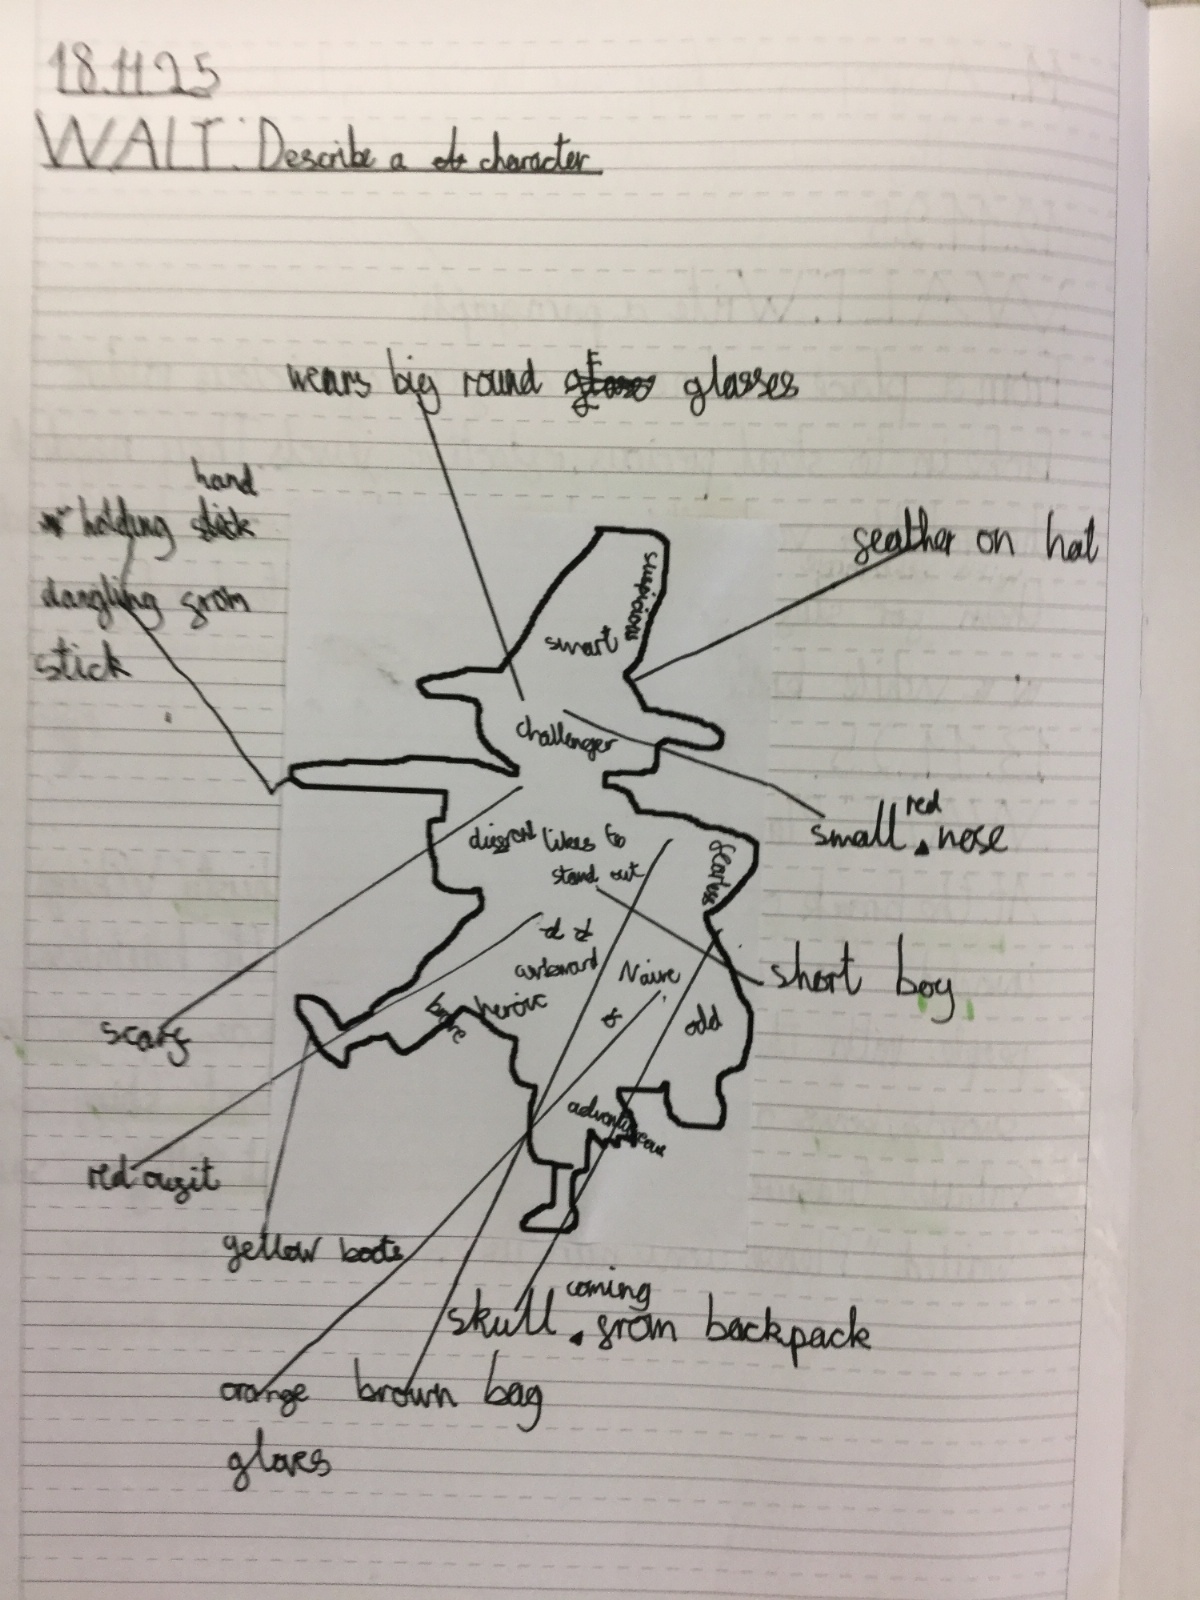 18.11.25
W.A.L.T. Describe a character
wears big round glasses
hand
holding stick
dangling from
stick
feather on hat
suspicious
smart
challenger
small red nose
different likes to
stand out
fearless
awkward
Naive
short boy
brave heroic
odd
scarf
adventureour
red oufit
yellow boots
coming
skull from backpack
orange brown bag
gloves